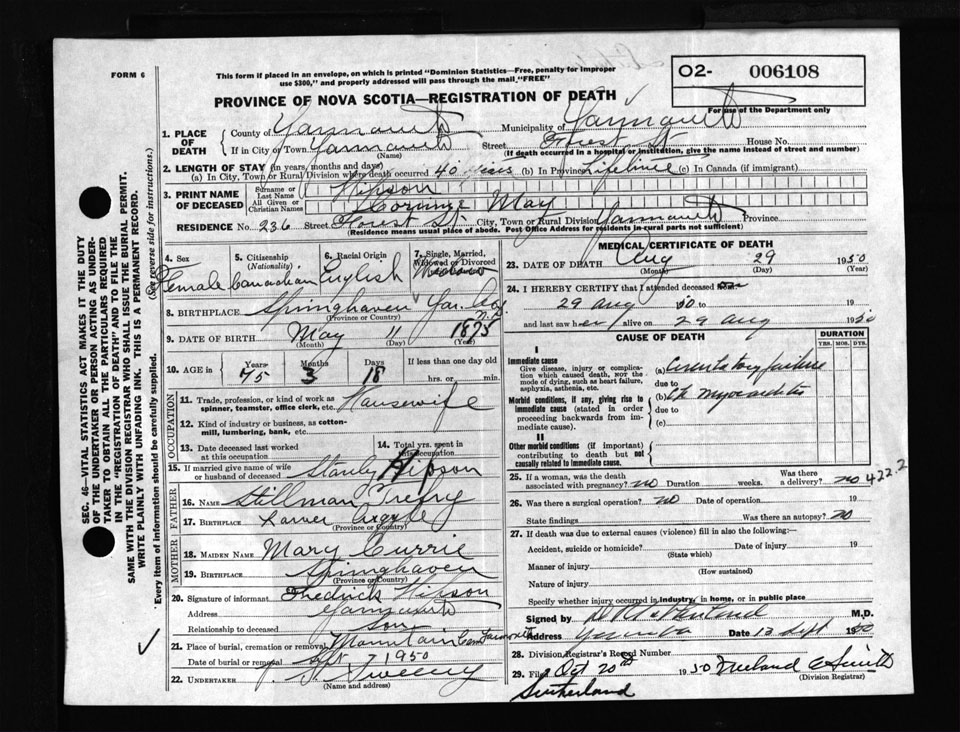 FORM 6
This form if placed in an envelope, on which is printed "Dominion Statistics—Free, penalty for improper
use $300," and properly addressed will pass through the mail "FREE"
O2- 006108
For use of the Department only
PROVINCE OF NOVA SCOTIA—REGISTRATION OF DEATH
1. PLACE OF DEATH
County of Yarmouth Municipality of Yarmouth
If in City or Town Yarmouth (Name) Street Forest St House No.
(If death occurred in a hospital or institution, give the name instead of street and number)
2. LENGTH OF STAY (in years, months and days)
(a) In City, Town or Rural Division where death occurred 40 (b) In Province Lifetime (c) In Canada (if immigrant)
3. PRINT NAME OF DECEASED
Surname or Last Name Hipson
All Given or Christian Names May
RESIDENCE No. 236 Street Forest St. City, Town or Rural Division Yarmouth Province
(Residence means usual place of abode. Post Office Address for residents in rural parts not sufficient)
4. Sex Female
5. Citizenship (Nationality) Canadian
6. Racial Origin English
7. Single, Married, Widowed or Divorced Widow
8. BIRTHPLACE Springhaven Yar. Co. N.S.
(Province or Country)
9. DATE OF BIRTH May 11 1875
(Month) (Day) (Year)
10. AGE in Years 75 Months 3 Days 18 If less than one day old
hrs. or min.
OCCUPATION
11. Trade, profession, or kind of work as
spinner, teamster, office clerk, etc. Housewife
12. Kind of industry or business, as cotton-
mill, lumbering, bank, etc.
13. Date deceased last worked
at this occupation
14. Total yrs. spent in
this occupation
15. If married give name of wife
or husband of deceased Stanley Hipson
FATHER
16. NAME Stillman Trefry
17. BIRTHPLACE Argyle
(Province or Country)
MOTHER
18. MAIDEN NAME Mary Currie
19. BIRTHPLACE Springhaven
(Province or Country)
20. Signature of informant Fredrick Hipson
Address Yarmouth
Relationship to deceased Son
21. Place of burial, cremation or removal Mountain Cem Yarmouth
Date of burial or removal Sept 7 1950
22. UNDERTAKER Sweeny
(Name and address)
MEDICAL CERTIFICATE OF DEATH
23. DATE OF DEATH Aug 29 1950
(Month) (Day) (Year)
24. I HEREBY CERTIFY that I attended deceased
29 Aug 50 to 19
and last saw her alive on 29 Aug 1950
CAUSE OF DEATH
DURATION
YRS. MOS. DYS.
I
Immediate cause
Give disease, injury or complica-
tion which caused death, not the
mode of dying, such as heart failure,
asphyxia, asthenia, etc.
(a) Circulatory failure
due to
Morbid conditions, if any, giving rise to
immediate cause (stated in order
proceeding backwards from im-
mediate cause).
(b) Ch myocarditis
due to
(c)
II
Other morbid conditions (if important)
contributing to death but not
causally related to immediate cause.
25. If a woman, was the death
associated with pregnancy? no Duration weeks. Was there
a delivery? no 422.2
26. Was there a surgical operation? no Date of operation 19
State findings Was there an autopsy? no
27. If death was due to external causes (violence) fill in also the following:
Accident, suicide or homicide? (State which) Date of injury 19
Manner of injury
(How sustained)
Nature of injury
Specify whether injury occurred in industry, in home, or in public place
Signed by M.D.
Address Date 13 Sept 1950
28. Division Registrar's Record Number
29. Filed Oct 20th 1950 E Smith
(Division Registrar)
Sutherland
SEC. 46—VITAL STATISTICS ACT MAKES IT THE DUTY
OF THE UNDERTAKER OR PERSON ACTING AS UNDER-
TAKER TO OBTAIN ALL THE PARTICULARS REQUIRED
IN THE "REGISTRATION OF DEATH" AND TO FILE THE
SAME WITH THE DIVISION REGISTRAR WHO SHALL ISSUE THE BURIAL PERMIT.
WRITE PLAINLY WITH UNFADING INK. THIS IS A PERMANENT RECORD.
Every item of information should be carefully supplied. (See reverse side for instructions.)